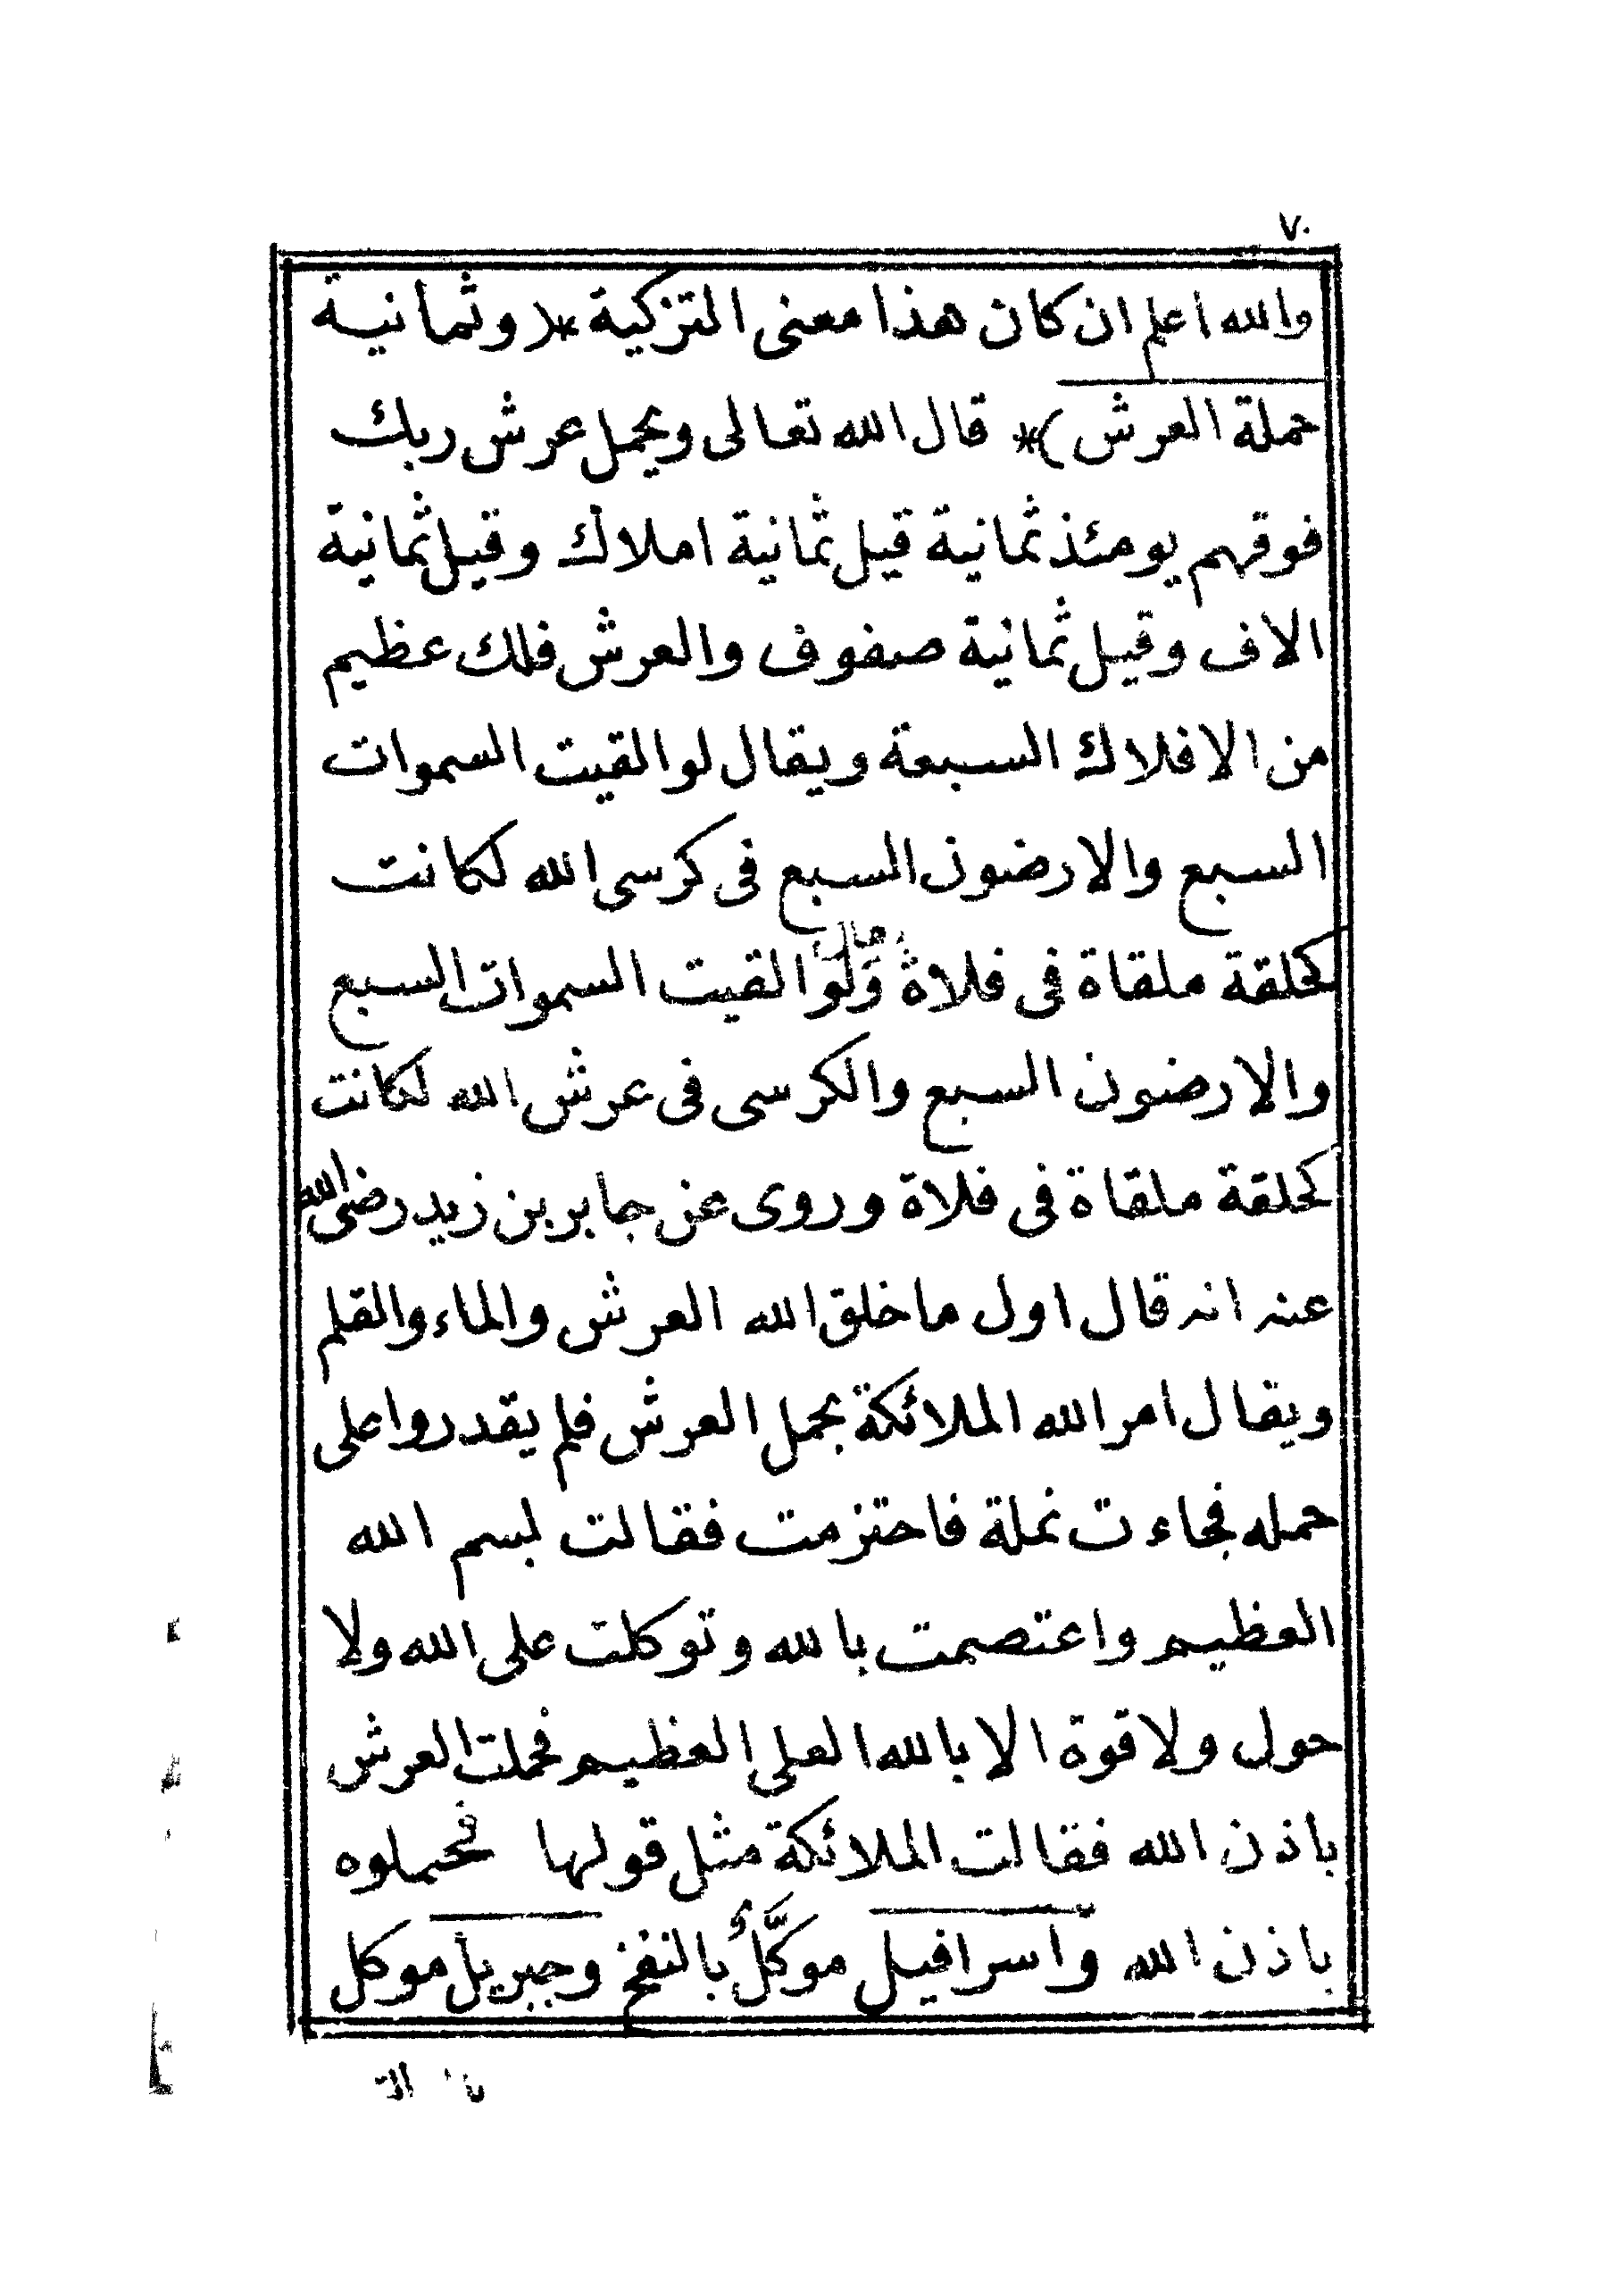 ٧٠
والله اعلم ان كان هذا معنى التزكية *( وثمانية
حملة العرش )* قال الله تعالى ويحمل عرش ربك
فوقهم يومئذ ثمانية قيل ثمانية املاك وقيل ثمانية
الاف وقيل ثمانية صفوف والعرش فلك عظيم
من الافلاك السبعة ويقال لو القيت السموات
السبع والارضون السبع فى كرسى الله لكانت
كحلقة ملقاة فى فلاة ولو القيت السموات السبع
والارضون السبع والكرسى فى عرش الله لكانت
كحلقة ملقاة فى فلاة وروى عن جابر بن زيد رضى الله
عنه انه قال اول ما خلق الله العرش والماء والقلم
ويقال امر الله الملائكة بحمل العرش فلم يقدروا على
حمله فجاءت نملة فاحتزمت فقالت بسم الله
العظيم واعتصمت بالله وتوكلت على الله ولا
حول ولا قوة الا بالله العلى العظيم فحملت العرش
باذن الله فقالت الملائكة مثل قولها فحملوه
باذن الله واسرافيل موكَّلٌ بالنفخ وجبريل موكل